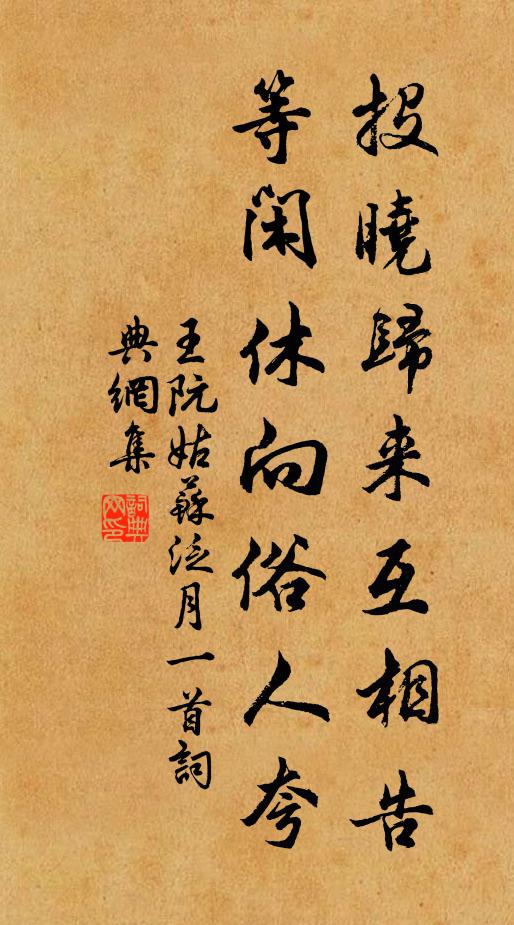 投曉歸来互相告
等閑休向俗人夸
王阮姑蘇泛月一首詞
典網集
詞典网印